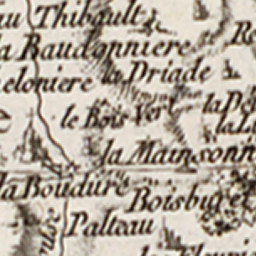 au Thibault
la Baudonniere
eloniere la Driade
le Bois Vert
la Mainsonn
la Boudure Boisburet
Palteau